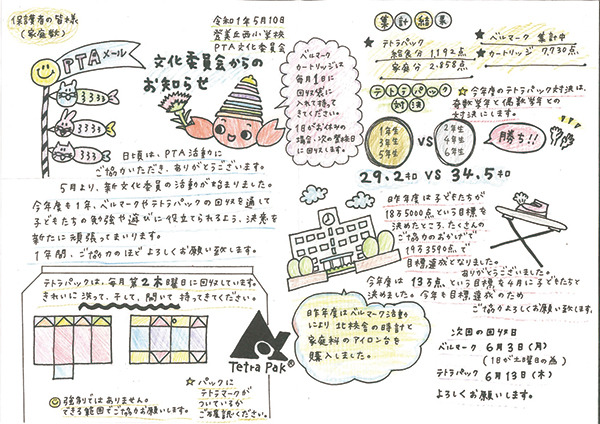 保護者の皆様
(家庭数)
令和1年5月10日
PTA文化委員会
PTAメール
文化委員会からの
お知らせ
日頃は、PTA活動に
ご協力いただき、ありがとうございます。
5月より、新文化委員の活動が始まりました。
今年度も1年、ベルマークやテトラパックの回収を通して
子どもたちの勉強や遊びに役立てられるよう、決意を
新たに頑張ってまいります。
1年間、ご協力のほどよろしくお願い致します。
ベルマーク
カートリッジは
毎月1日に
回収袋に
入れて持って
きてください。
1日がお休みの
場合、次の登校日
に回収します。
集計結果
★テトラパック
給食分 1,192点
家庭分 2,858点
★ベルマーク 集計中
★カートリッジ 7,730点
テトラパック
対決
☆今年度のテトラパック対決は、
奇数学年と偶数学年との
対決にします。
1年生
3年生
5年生
VS
2年生
4年生
6年生
勝ち!!
29.2キロ VS 34.5キロ
昨年度は子どもたちが
18万5000点という目標を
決めたところ、たくさんの
ご協力のおかげで
19万3590点で
目標達成となりました。
ありがとうございました。
今年度は 19万点 という目標を4月に子どもたちと
決めました。今年も目標達成のため
ご協力よろしくお願い致します。
テトラパックは、毎月第2木曜日に回収しています。
きれいに洗って、そして、開いて持ってきてください。
Tetra Pak®
☆パックに
テトラマークが
ついているか
ご確認ください。
強制ではありません。
できる範囲でご協力お願いします。
昨年度はベルマーク活動
により北校舎の時計と
家庭科のアイロン台を
購入しました。
次回の回収日
ベルマーク 6月3日(月)
(1日が土曜日の為)
テトラパック 6月13日(木)
よろしくお願いします。